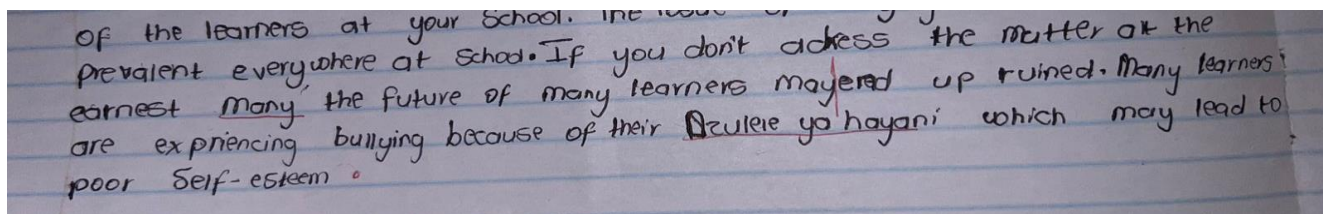 of the learners at your School. The issue
prevalent everywhere at school. If you don't adress the matter at the
earnest many the future of many learners may end up ruined. Many learners
are expriencing bullying because of their Dzulele ya hayani which may lead to
poor Self-esteem.